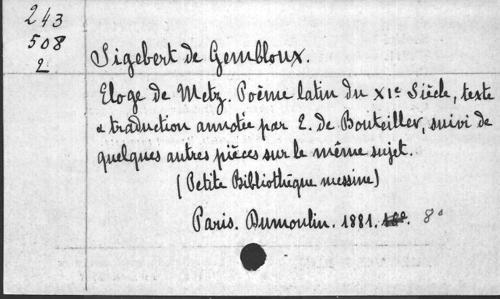 243
508
2
Sigebert de Gembloux.
Eloge de Metz. Poème latin du XIe Siècle, texte
& traduction annotée par E. de Bouteiller, suivi de
quelques autres pièces sur le même sujet.
(Petite Bibliothèque messine)
Paris. Dumoulin. 1881. 8°